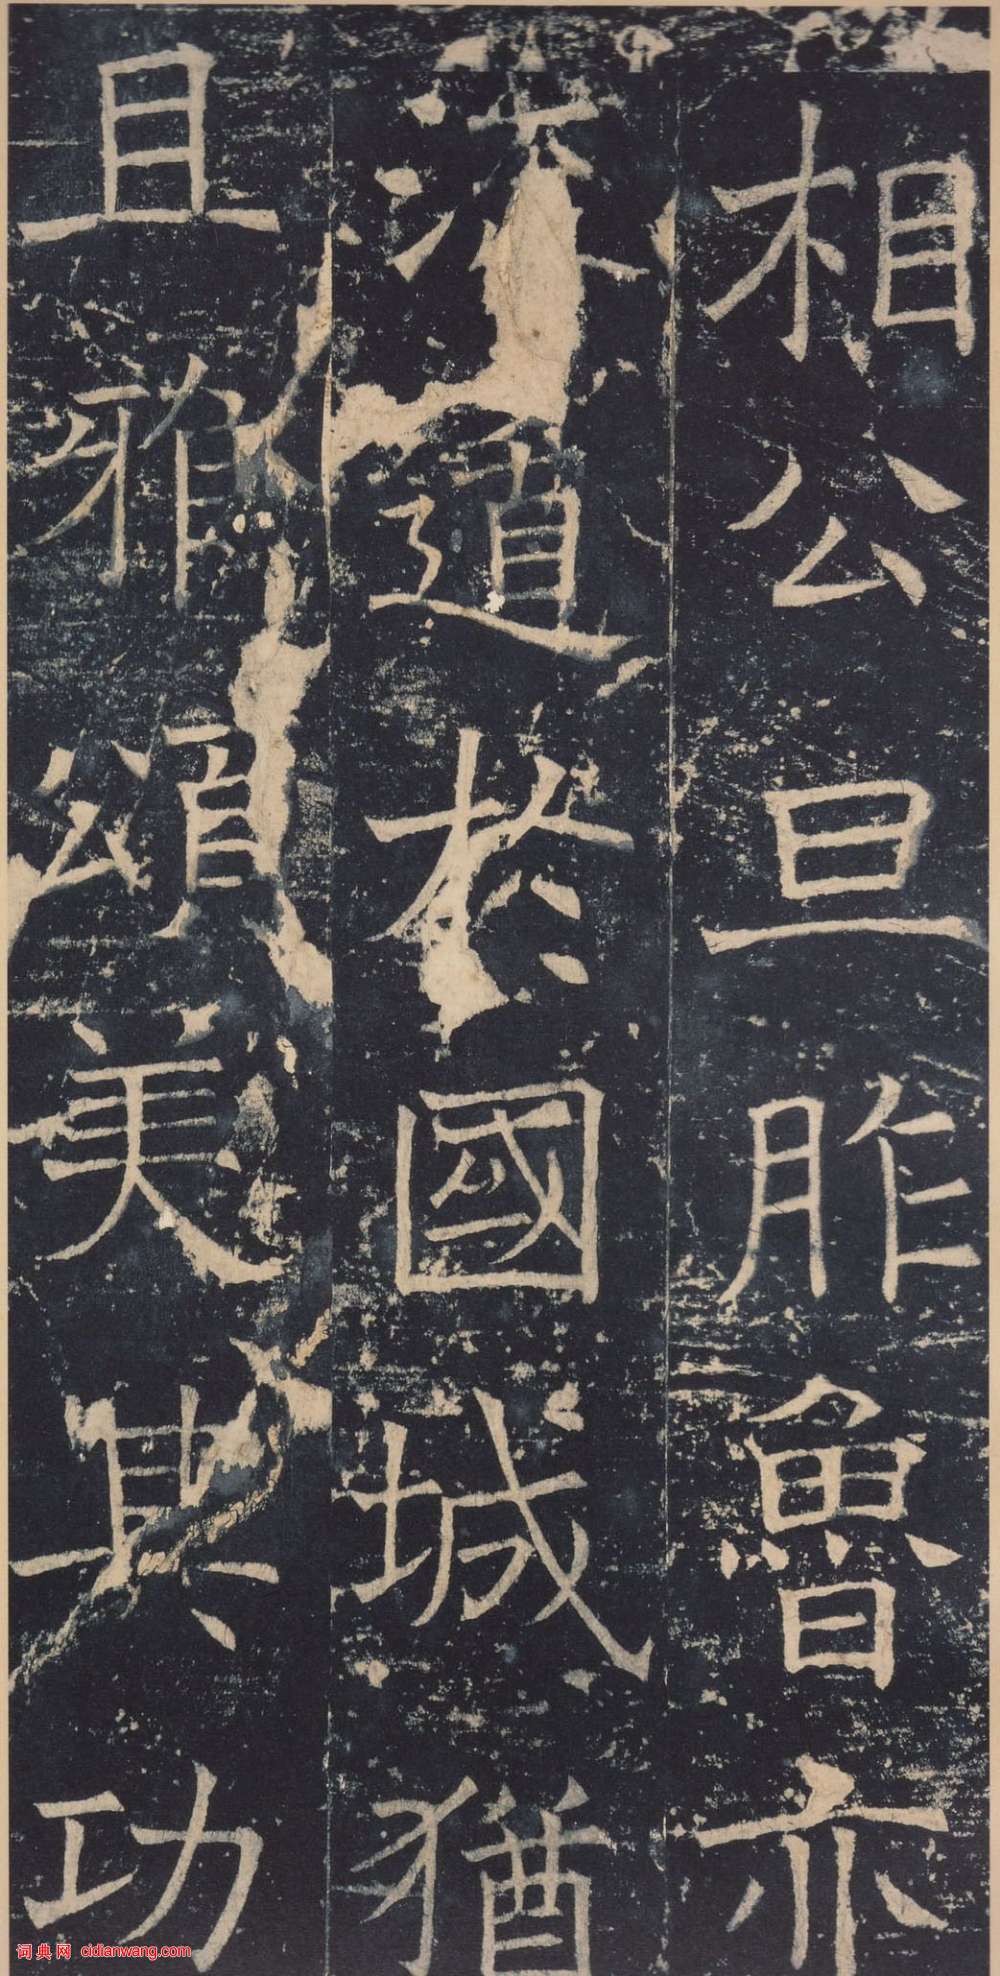 相公旦胙魯亦
道於國城猶
且雅頌美其功
词典网 cidianwang.com